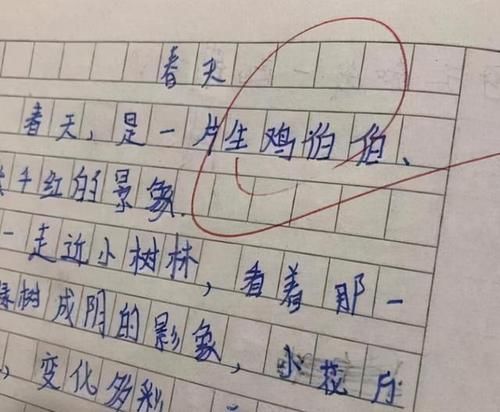 春天
春天,是一片生鸡伯伯、
千红的景象.
一走近小树林,看着那一
树成阴的影象,小花
,变化多彩